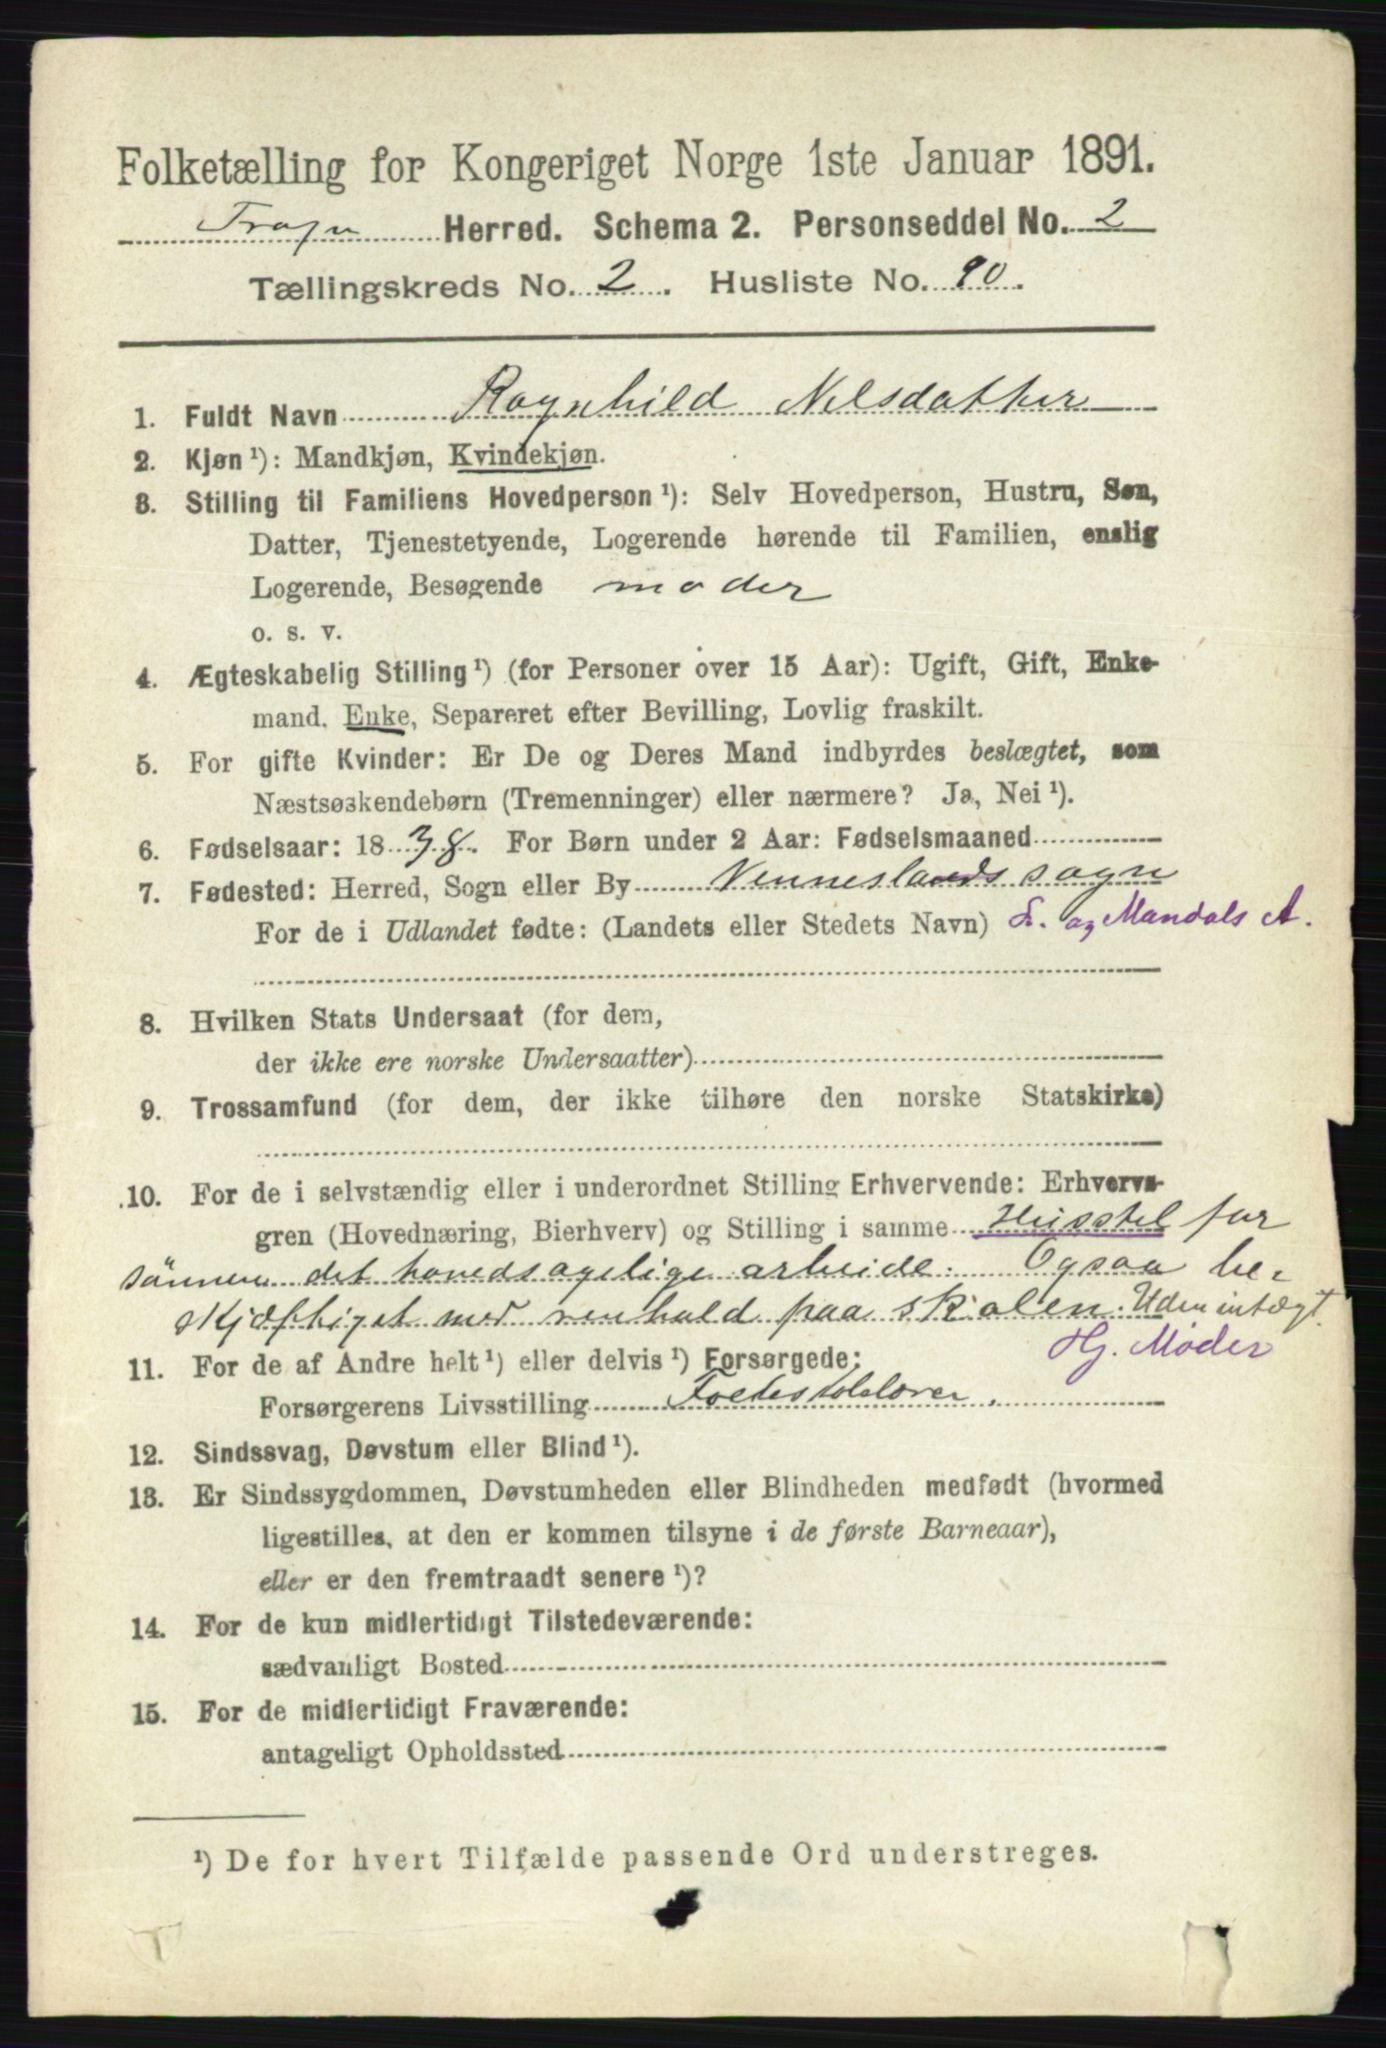 Folketælling for Kongeriget Norge 1ste Januar 1891.
Herred. Schema 2. Personseddel No. 2
Tællingskreds No. 2. Husliste No. 90.
1. Fuldt Navn Ragnhild Nelsdatter
2. Kjøn ¹): Mandkjøn, Kvindekjøn.
3. Stilling til Familiens Hovedperson ¹): Selv Hovedperson, Hustru, Søn,
Datter, Tjenestetyende, Logerende hørende til Familien, enslig
Logerende, Besøgende moder
o. s. v.
4. Ægteskabelig Stilling ¹) (for Personer over 15 Aar): Ugift, Gift, Enke-
mand, Enke, Separeret efter Bevilling, Lovlig fraskilt.
5. For gifte Kvinder: Er De og Deres Mand indbyrdes beslægtet, som
Næstsøskendebørn (Tremenninger) eller nærmere? Ja, Nei ¹).
6. Fødselsaar: 1838. For Børn under 2 Aar: Fødselsmaaned
7. Fødested: Herred, Sogn eller By Venneslands sogn
For de i Udlandet fødte: (Landets eller Stedets Navn) L. og Mandals A.
8. Hvilken Stats Undersaat (for dem,
der ikke ere norske Undersaatter)
9. Trossamfund (for dem, der ikke tilhøre den norske Statskirke)
10. For de i selvstændig eller i underordnet Stilling Erhvervende: Erhvervs-
gren (Hovednæring, Bierhverv) og Stilling i samme Husstel for
sønnen det hovedsagelige arbeide. Ogsaa be-
skjæftiget med renhold paa skolen. Uden intægt.
Hj. Moder
11. For de af Andre helt ¹) eller delvis ¹) Forsørgede:
Forsørgerens Livsstilling
12. Sindssvag, Døvstum eller Blind ¹).
13. Er Sindssygdommen, Døvstumheden eller Blindheden medfødt (hvormed
ligestilles, at den er kommen tilsyne i de første Barneaar),
eller er den fremtraadt senere ¹)?
14. For de kun midlertidigt Tilstedeværende:
sædvanligt Bosted
15. For de midlertidigt Fraværende:
antageligt Opholdssted
¹) De for hvert Tilfælde passende Ord understreges.